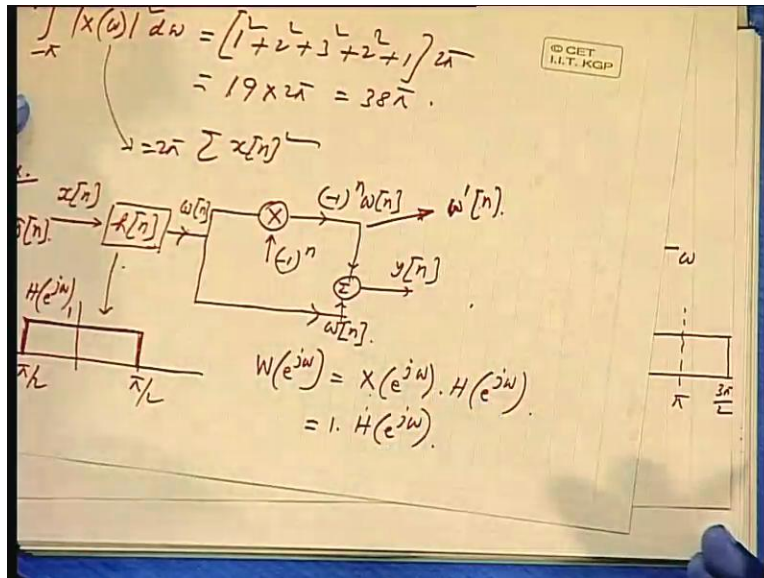 ∫ |X(ω)|² dω = [1² + 2² + 3² + 2² + 1] 2π
-π
= 19 × 2π = 38π.
© CET
I.I.T. KGP
= 2π Σ x[n]²
x[n]
h[n]
ω[n]
X
(-1)ⁿ
(-1)ⁿ ω[n]
ω'[n].
[n].
Σ
y[n]
ω[n].
ω
H(e^{jω})
1
π/2
π/2
W(e^{jω}) = X(e^{jω}) . H(e^{jω}).
= 1. H(e^{jω}).
π
3π/2